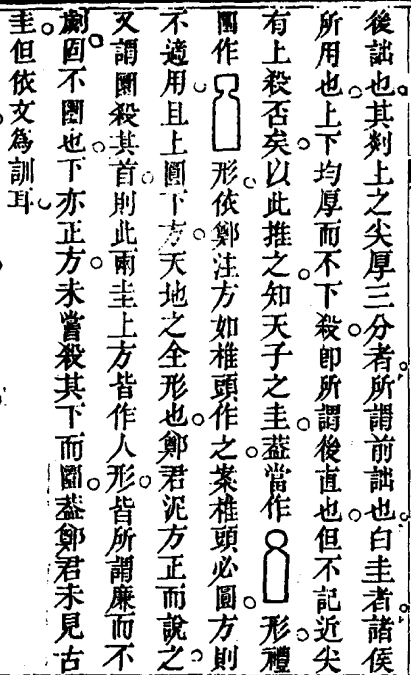 後詘也。其剡上之尖厚三分者。所謂前詘也。白圭者。諸侯
所用也。上下均厚而不下殺。卽所謂後直也。但不記近尖
有上殺否矣。以此推之。知天子之圭。葢當作形。禮
圖作形。依鄭注方如椎頭作之。案椎頭必圓。方則
不適用。且上圓下方。天地之全形也。鄭君泥方正而說之。
又謂圜殺其首。則此兩圭上方皆作人形。皆所謂廉而不
劌。固不圜也。下亦正方。未嘗殺其下而圜。葢鄭君未見古
圭。但依文為訓耳。